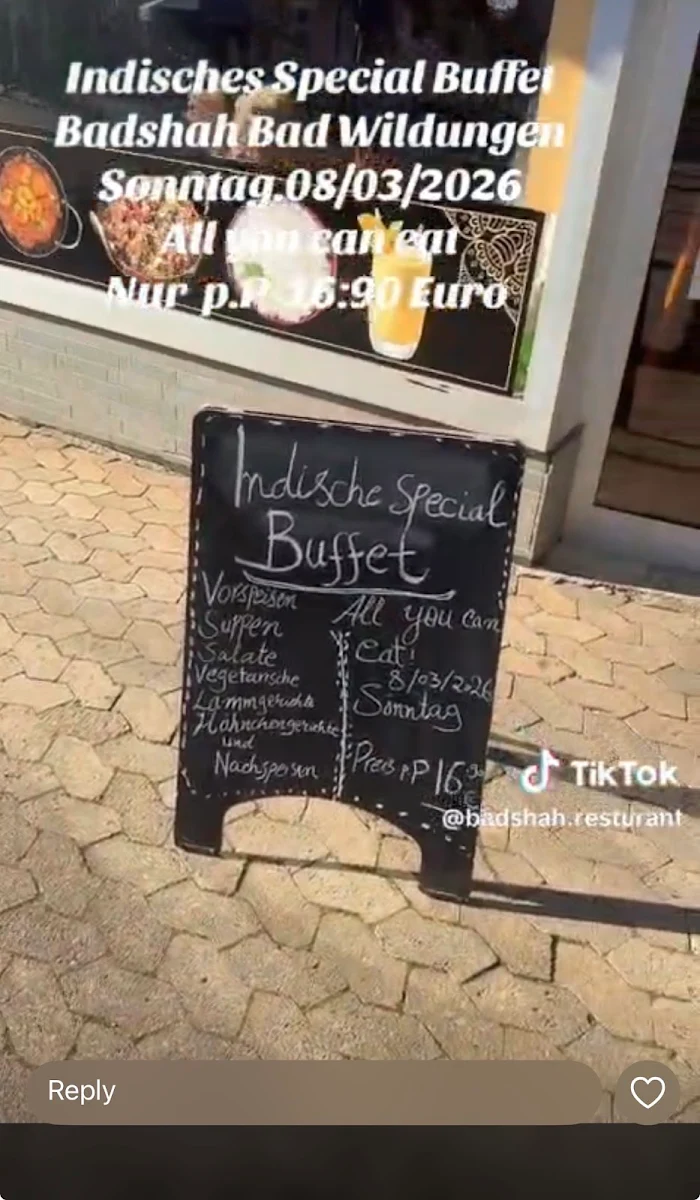 Indisches Special Buffet
Badshah Bad Wildungen
Sonntag.08/03/2026
All you can eat
Nur p.P 16:90 Euro
Indische Special
Buffet
Vorspeisen
Suppen
Salate
Vegetarische
Lammgerichte
Hähnchengerichte
und
Nachspeisen
All you can
eat!
8/03/2026
Sonntag
Preis p.P 16,90
TikTok
@badshah.resturant
Reply